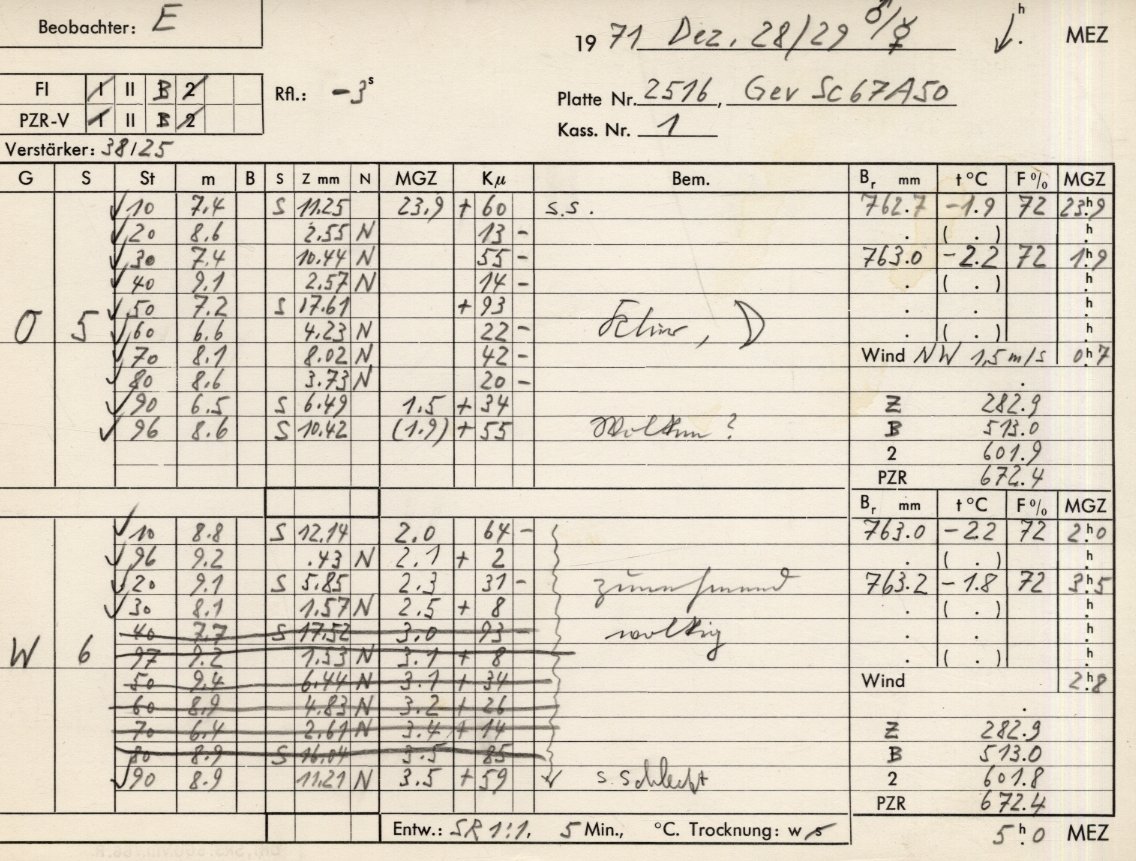 Beobachter: E
19 71 Dez. 28/29 ♂/☿ h MEZ
FI I II B 2 Rfl.: -3s
PZR-V I II B 2
Platte Nr. 2516, Gev Sc67A50
Kass. Nr. 1
Verstärker: 38125
G S St m B S Z mm N MGZ Kμ Bem. Br mm t °C F % MGZ
10 7.4 S 11.25 23,9 + 60 s.s. 762.7 -1.9 72 23h9
20 8.6 2.55 N 13 - . ( . ) h
30 7.4 10.44 N 55 - 763.0 -2.2 72 1h9
40 9.1 2.57 N 14 - . ( . ) h
50 7.2 S 17.61 + 93 . . h
O 5 60 6.6 4.23 N 22 - , . ( . ) h
70 8.1 8.02 N 42 - Wind NW 1,5 m/s 0h7
80 8.6 3.73 N 20 - .
90 6.5 S 6.49 1.5 + 34 Z 282.9
96 8.6 S 10.42 (1.9) + 55 Wolken? B 513.0
2 601.9
PZR 672.4
Br mm t °C F % MGZ
10 8.8 S 12.14 2.0 64 - 763.0 -2.2 72 2h0
96 9.2 .43 N 2.1 + 2 . ( . ) h
20 9.1 S 5.85 2.3 31 - zunehmend 763.2 -1.8 72 3h5
30 8.1 1.57 N 2.5 + 8 . ( . ) h
40 7.7 S 17.52 3.0 93 - wolkig . . h
W 6 97 9.2 1.53 N 3.1 + 8 . ( . ) h
50 9.4 6.44 N 3.1 + 34 Wind 2h8
60 8.9 4.83 N 3.2 + 26 .
70 6.4 2.61 N 3.4 + 14 Z 282.9
80 8.9 S 16.04 3.5 85 B 513.0
90 8.9 11.21 N 3.5 + 59 s. schlecht 2 601.8
PZR 672.4
Entw.: SR 1:1, 5 Min., °C. Trocknung: w s 5h0 MEZ